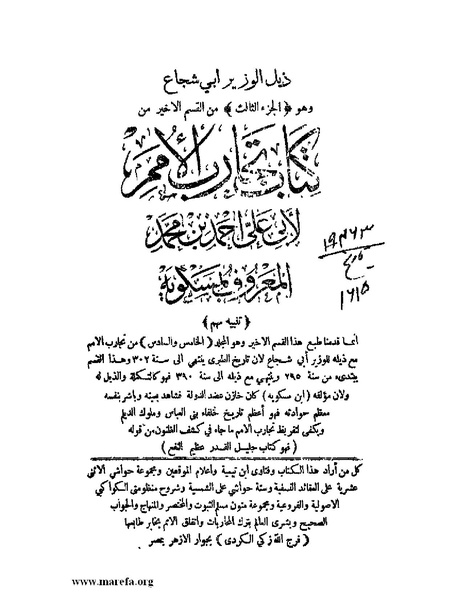 ذيل الوزير ابي شجاع
وهو ﴿ الجزء الثالث ﴾ من القسم الاخير من
كتاب تجارب الأمم
لأبى على احمد بن محمد
المعروف بمسكويه
﴿ تنبيه مهم ﴾
انما قدمنا طبع هذا القسم الاخير وهو المجلد ( الخامس والسادس ) من تجارب الامم
مع ذيله للوزير أبي شجاع لان تاريخ الطبرى ينتهى الى سنة ٣٠٢ وهذا القسم
يبتدىء من سنة ٢٩٥ وينتهى مع ذيله الى سنة ٣٩٠ فهو كالتكملة والذيل له
ولان مؤلفه ( ابن مسكويه ) كان خازن عضد الدولة فشاهد بعينه وباشر بنفسه
معظم حوادثه فهو أعظم تاريخ خلفاء بنى العباس وملوك الديلم
ويكفى لتقريظ تجارب الامم ما جاء في كشف الظنون من قوله
( فهو كتاب جليل القدر عظيم النفع )
كل من أراد هذا الكتاب وفتاوى ابن تيمية وأعلام الموقعين ومجموعة حواشي الاثنى
عشرية على العقائد النسفية وستة حواشي على الشمسية وشروح منظومتى الكواكبي
الاصولية والفروعية ومجموعة متون مسلم الثبوت والمختصر والمنهاج والجواب
الصحيح وبشرى العالم بترك المحاربات واتفاق الامم يخابر طابعها
( فرج الله زكي الكردى ) بجوار الازهر بمصر
١٩٠٦٣
تاريخ
١٦١٥
www.marefa.org